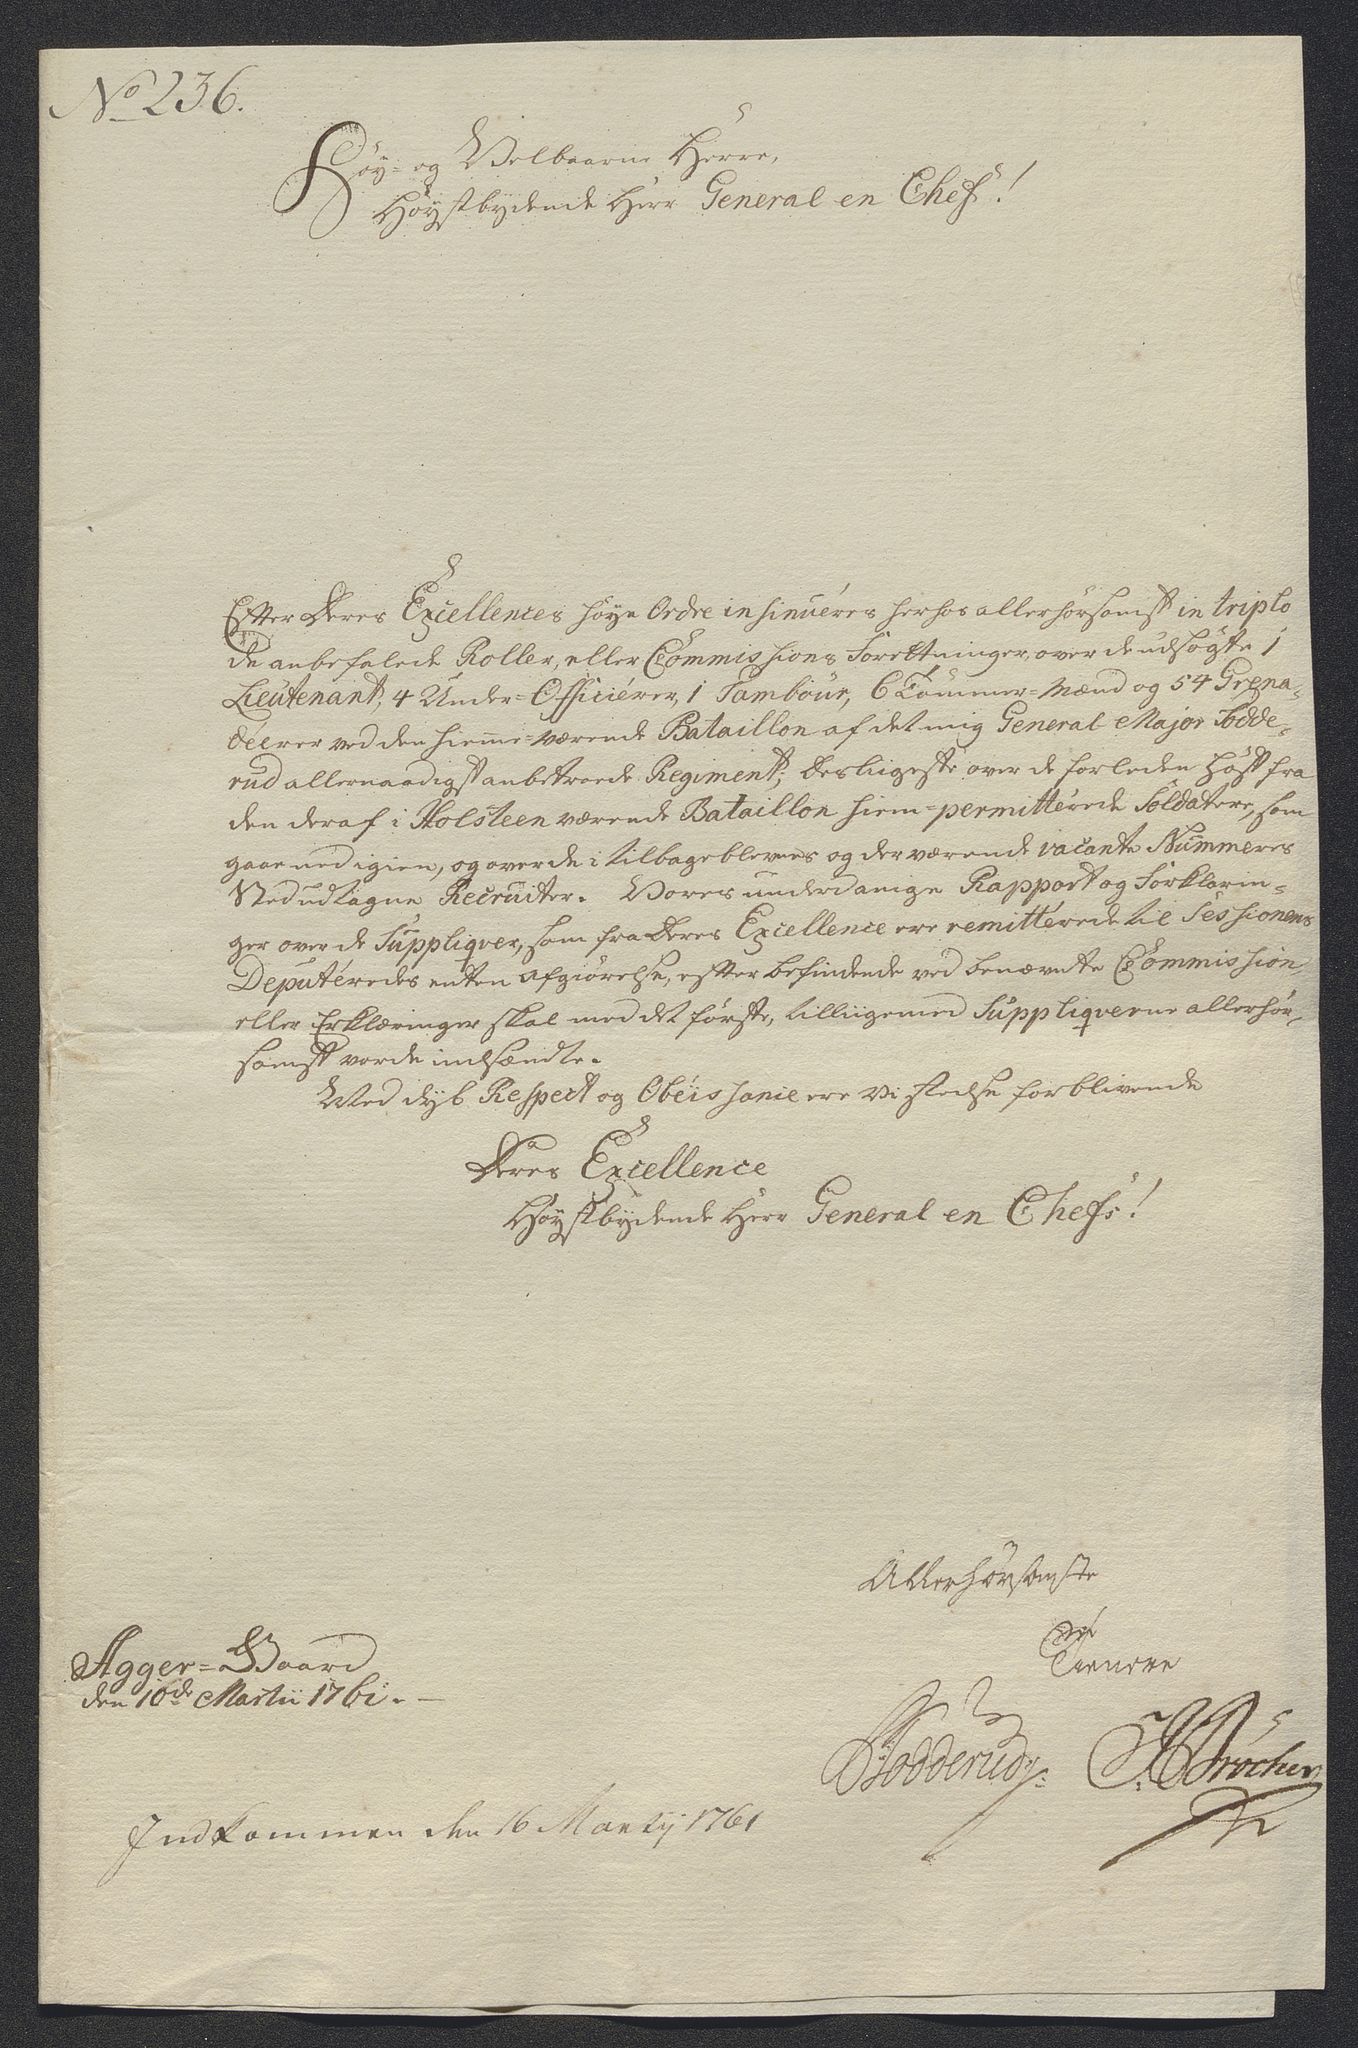 No 236.
Høy- og Velbaarne Herre,
Høystbydende Herr General en Chef!
Efter Deres Excellences høye Ordre insinuéres herhos allerhørsomst in triplo
de anbefalede Roller, eller Commissions Forrettninger, over de udsøgte 1
Lieutenant, 4 Under-Officiérer, 1 Tambour, 6 Tømmer-Mænd og 54 Grena-
deerer ved den hieme-værende Bataillon af det mig General Major Todde-
rud allernaadigst anbetroede Regiment; Desliigeste over de forleden Høst fra
den deraf i Holsteen værende Bataillon hiem-permitterede Soldatere, som
gaae ned igien, og over de i tilbageblevnes og der værende vacante Nummeres
Sted udtagne Recruiter. Vores underdanige Rapport og Forklarin-
ger over de Suppliqver, som fra Deres Excellence ere remitterede til Sessionens
Deputéredes enten Afgiørelse, efter befindende ved benævnte Commission,
eller Erklæringer skal med det første, tilliigemed Suppliqverne allerhør-
somst vorde indsændte.
Med dyb Respect og Obéissance ere Vi stedse forblivende
Deres Excellence
Høystbydende Herr General en Chefs!
Allerhørsomste
Tienere
Agger-Gaard
den 10de Martii 1761.
Todderud
Brochen
Indkommen den 16 Martij 1761